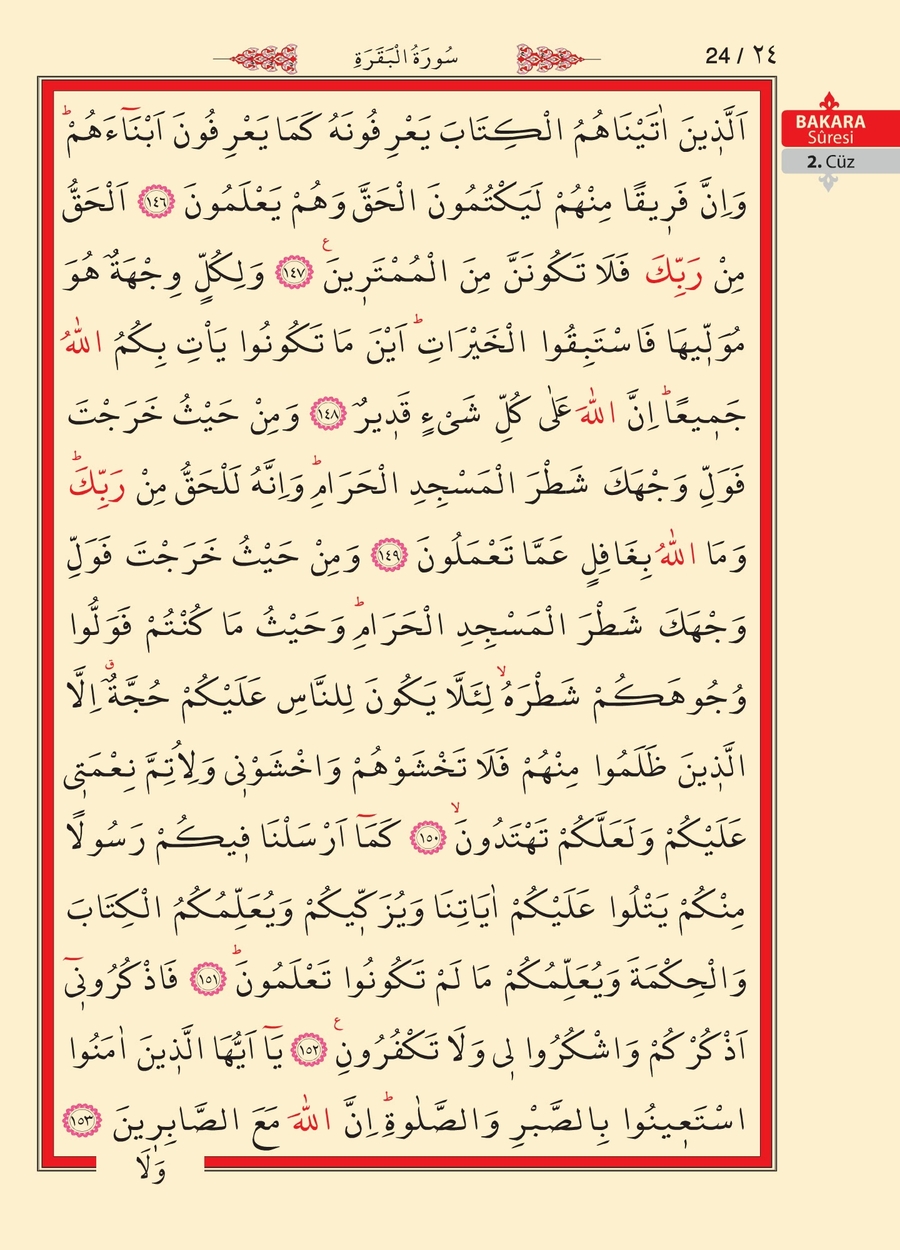 سُورَةُ الْبَقَرَةِ
24 / ٢٤
BAKARA
Sûresi
2. Cüz
اَلَّذ۪ينَ اٰتَيْنَاهُمُ الْكِتَابَ يَعْرِفُونَهُ كَمَا يَعْرِفُونَ اَبْنَٓاءَهُمْۜ
وَاِنَّ فَر۪يقًا مِنْهُمْ لَيَكْتُمُونَ الْحَقَّ وَهُمْ يَعْلَمُونَ ﴿١٤٦﴾ اَلْحَقُّ
مِنْ رَبِّكَ فَلَا تَكُونَنَّ مِنَ الْمُمْتَر۪ينَ۟ ﴿١٤٧﴾ وَلِكُلٍّ وِجْهَةٌ هُوَ
مُوَلّ۪يهَا فَاسْتَبِقُوا الْخَيْرَاتِۜ اَيْنَ مَا تَكُونُوا يَأْتِ بِكُمُ اللّٰهُ
جَم۪يعًاۜ اِنَّ اللّٰهَ عَلٰى كُلِّ شَيْءٍ قَد۪يرٌ ﴿١٤٨﴾ وَمِنْ حَيْثُ خَرَجْتَ
فَوَلِّ وَجْهَكَ شَطْرَ الْمَسْجِدِ الْحَرَامِۜ وَاِنَّهُ لَلْحَقُّ مِنْ رَبِّكَۜ
وَمَا اللّٰهُ بِغَافِلٍ عَمَّا تَعْمَلُونَ ﴿١٤٩﴾ وَمِنْ حَيْثُ خَرَجْتَ فَوَلِّ
وَجْهَكَ شَطْرَ الْمَسْجِدِ الْحَرَامِۜ وَحَيْثُ مَا كُنْتُمْ فَوَلُّوا
وُجُوهَكُمْ شَطْرَهُۙ لِئَلَّا يَكُونَ لِلنَّاسِ عَلَيْكُمْ حُجَّةٌۗ اِلَّا
الَّذ۪ينَ ظَلَمُوا مِنْهُمْ فَلَا تَخْشَوْهُمْ وَاخْشَوْن۪ي وَلِاُتِمَّ نِعْمَت۪ي
عَلَيْكُمْ وَلَعَلَّكُمْ تَهْتَدُونَۙ ﴿١٥٠﴾ كَمَٓا اَرْسَلْنَا ف۪يكُمْ رَسُولًا
مِنْكُمْ يَتْلُوا عَلَيْكُمْ اٰيَاتِنَا وَيُزَكّ۪يكُمْ وَيُعَلِّمُكُمُ الْكِتَابَ
وَالْحِكْمَةَ وَيُعَلِّمُكُمْ مَا لَمْ تَكُونُوا تَعْلَمُونَۜ ﴿١٥١﴾ فَاذْكُرُون۪ٓي
اَذْكُرْكُمْ وَاشْكُرُوا ل۪ي وَلَا تَكْفُرُونِ۟ ﴿١٥٢﴾ يَٓا اَيُّهَا الَّذ۪ينَ اٰمَنُوا
اسْتَع۪ينُوا بِالصَّبْرِ وَالصَّلٰوةِۜ اِنَّ اللّٰهَ مَعَ الصَّابِر۪ينَ ﴿١٥٣﴾
وَلَا